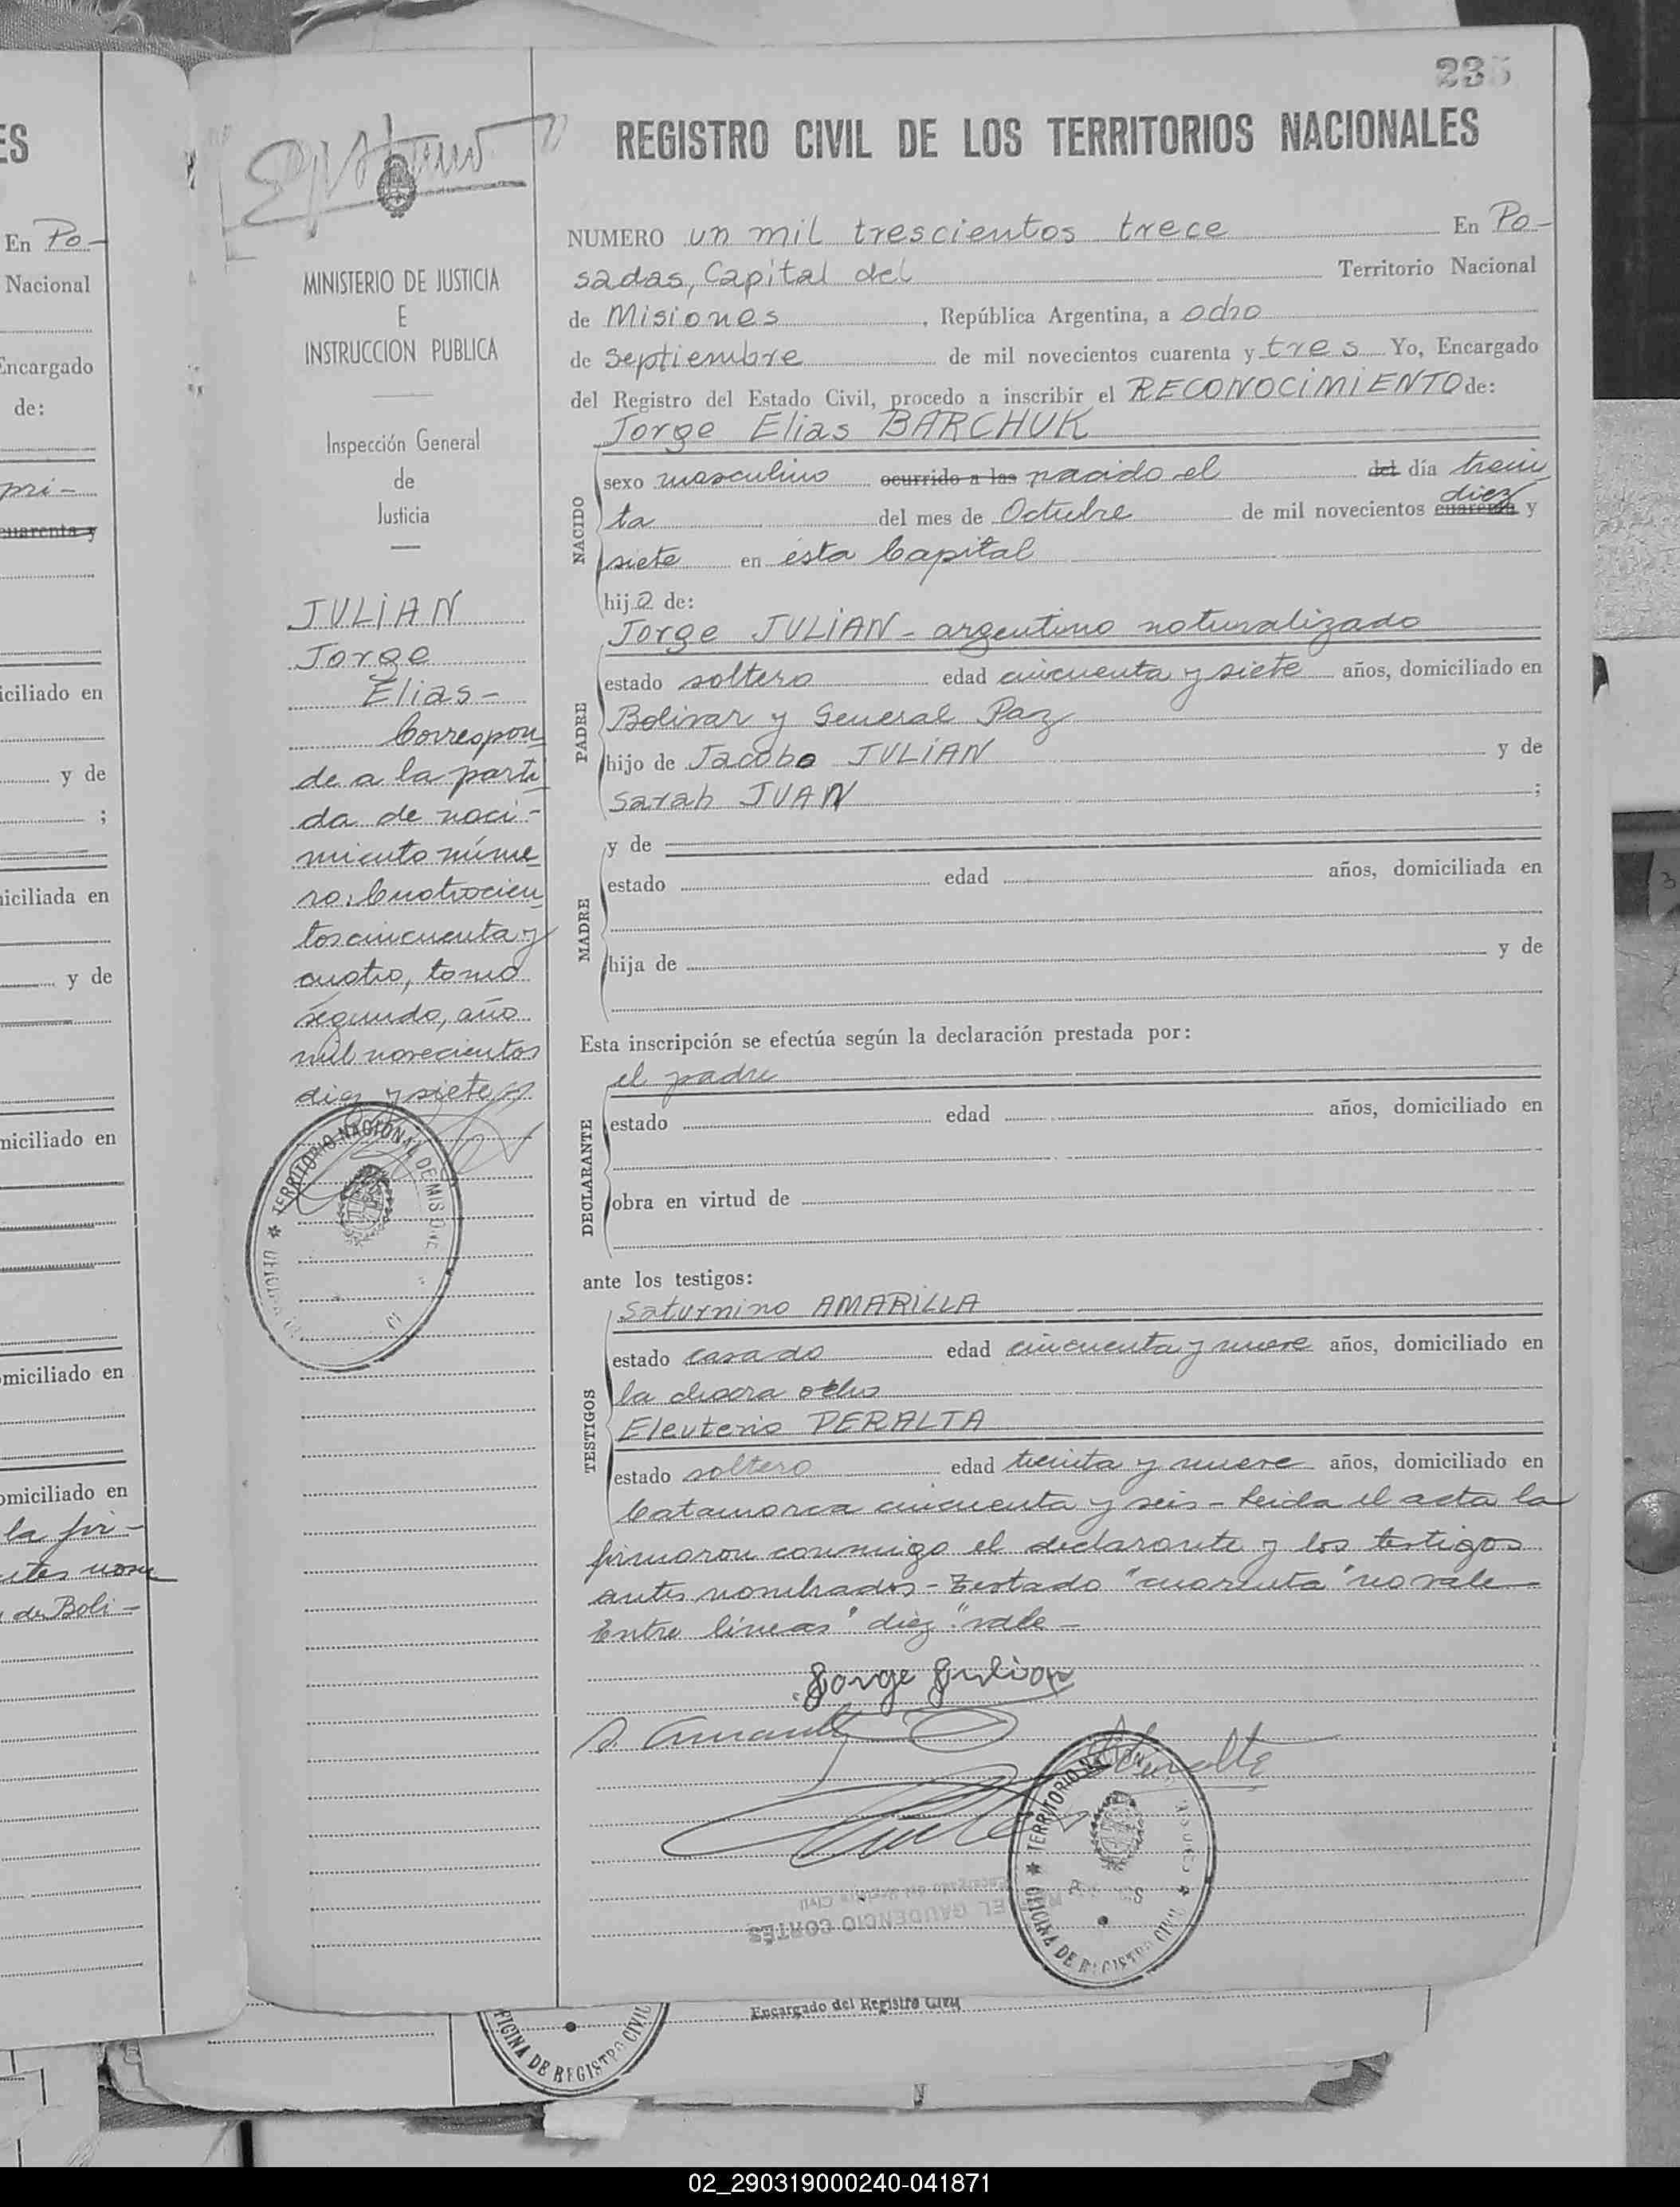 235
REGISTRO CIVIL DE LOS TERRITORIOS NACIONALES
MINISTERIO DE JUSTICIA
E
INSTRUCCION PUBLICA
Inspección General
de
Justicia
JULIAN
Jorge
Elias-
Correspon
de a la parti
da de naci-
miento núme
ro. Cuatrocien
tos cincuenta y
cuatro, tomo
segundo, año
mil novecientos
diez y siete
TERRITORIO NACIONAL DE MISIONES
NUMERO un mil trescientos trece En Po-
sadas, Capital del Territorio Nacional
de Misiones, República Argentina, a ocho
de Septiembre de mil novecientos cuarenta y tres Yo, Encargado
del Registro del Estado Civil, procedo a inscribir el RECONOCIMIENTO de:
Jorge Elias BARCHUK
NACIDO
sexo masculino ocurrido a las nacido el del día trein
ta del mes de Octubre de mil novecientos cuarenta diez y
siete en ésta Capital
hijo de:
PADRE
Jorge JULIAN - argentino naturalizado
estado soltero edad cincuenta y siete años, domiciliado en
Bolivar y General Paz
hijo de Jacobo JULIAN y de
Sarah JUAN ;
MADRE
y de
estado edad años, domiciliada en
hija de y de
Esta inscripción se efectúa según la declaración prestada por:
DECLARANTE
el padre
estado edad años, domiciliado en
obra en virtud de
ante los testigos:
TESTIGOS
Saturnino AMARILLA
estado casado edad cincuenta y nueve años, domiciliado en
la chacra ocho
Eleuterio PERALTA
estado soltero edad treinta y nueve años, domiciliado en
Catamarca cincuenta y seis - Leida el acta la
firmaron conmigo el declarante y los testigos
antes nombrados - Testado "cuarenta" no vale
Entre lineas "diez" vale -
Jorge Julian
TERRITORIO NACIONAL
OFICINA DE REGISTRO CIVIL
GAUDENCIO CORTÉS
Encargado del Registro Civil
Encargado del Registro Civil
OFICINA DE REGISTRO CIVIL
ES
En Po-
Nacional
Encargado
de:
pri-
cuarenta y
iciliado en
y de
;
iciliada en
y de
miciliado en
omiciliado en
omiciliado en
la fir-
de Boli-
02_290319000240-041871